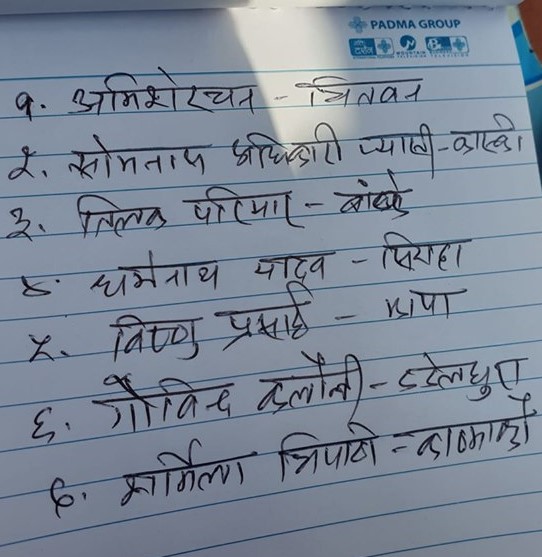 PADMA GROUP
१. अभिशेरचन - चितवन
२. सोमनाथ अधिकारी प्यासी - कास्की
३. तिलक परियार - बांके
४. धर्मनाथ यादव - सिराहा
५. विष्णु प्रसाई - झापा
६. गोविन्द वलौली - डडेलधुरा
७. सर्मिला त्रिपाठी -